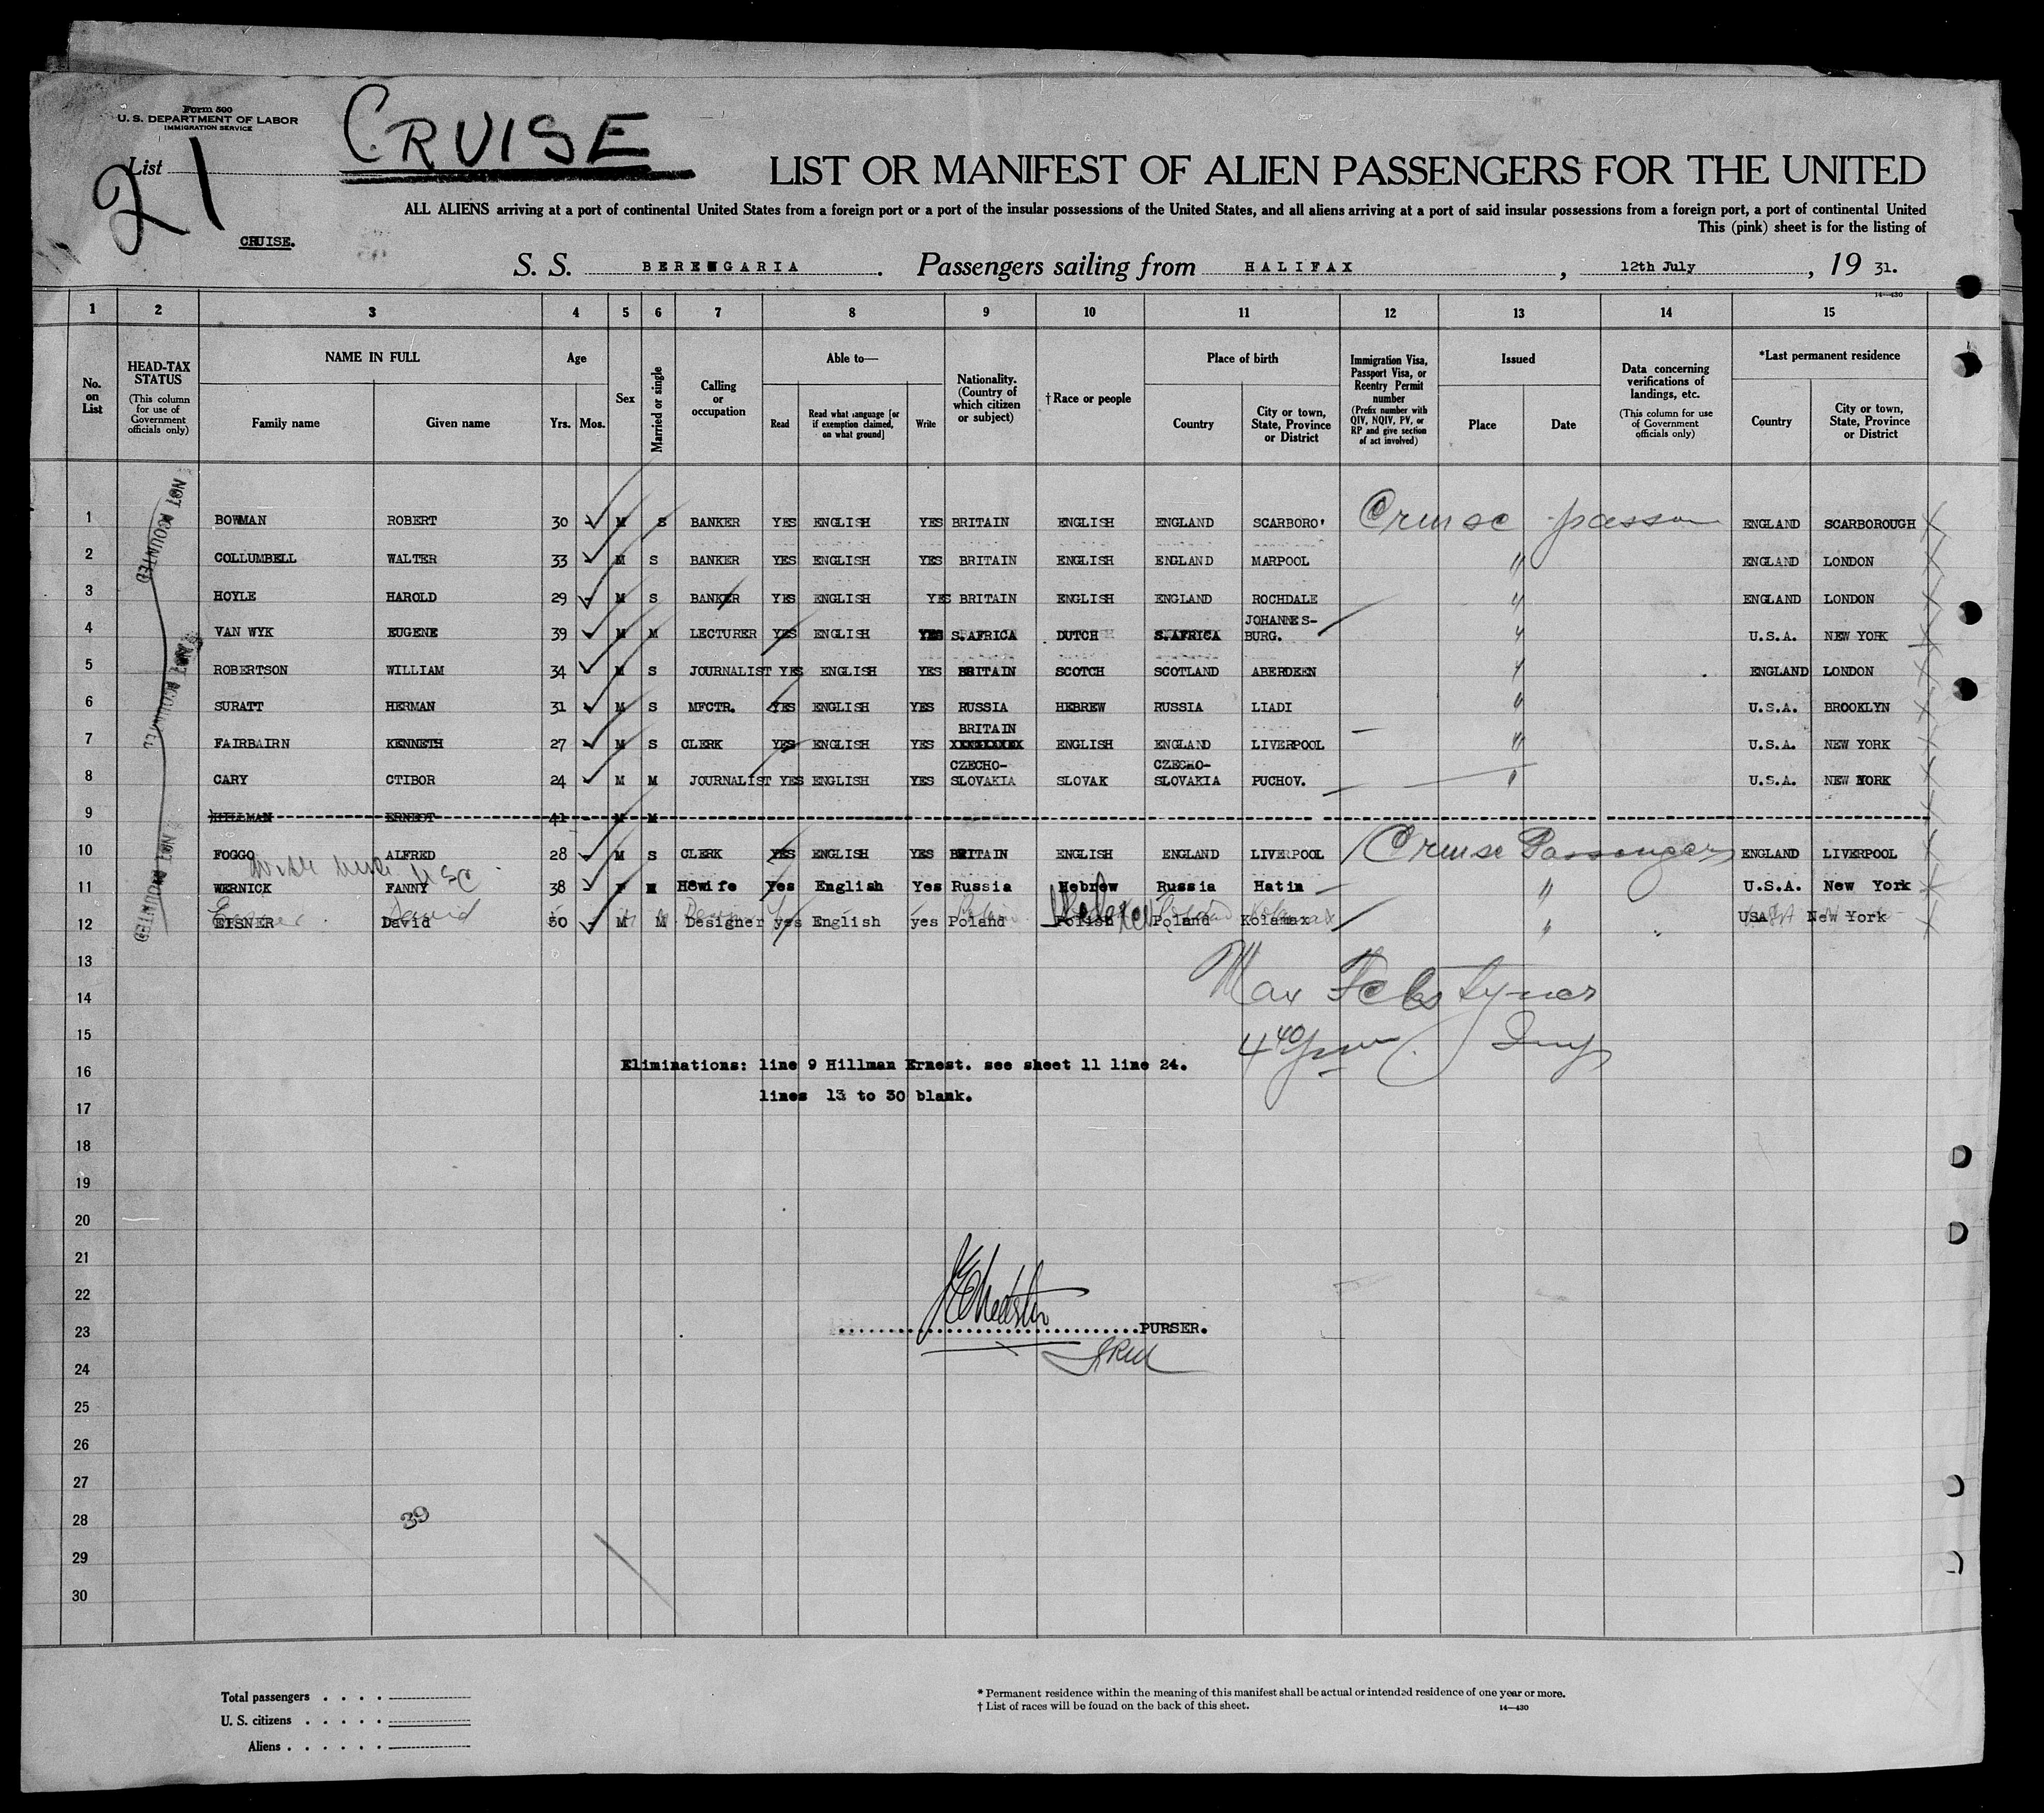 Form 500
U. S. DEPARTMENT OF LABOR
IMMIGRATION SERVICE
CRUISE
List
21
LIST OR MANIFEST OF ALIEN PASSENGERS FOR THE UNITED
ALL ALIENS arriving at a port of continental United States from a foreign port or a port of the insular possessions of the United States, and all aliens arriving at a port of said insular possessions from a foreign port, a port of continental United
This (pink) sheet is for the listing of
CRUISE.
S. S. BERENGARIA. Passengers sailing from HALIFAX, 12th July, 19 31.
14—430
1 2 3 4 5 6 7 8 9 10 11 12 13 14 15
No. on List
HEAD-TAX STATUS (This column for use of Government officials only)
NAME IN FULL
Family name Given name
Age
Yrs. Mos.
Sex
Married or single
Calling or occupation
Able to—
Read Read what language [or if exemption claimed, on what ground] Write
Nationality. (Country of which citizen or subject)
†Race or people
Place of birth
Country City or town, State, Province or District
Immigration Visa, Passport Visa, or Reentry Permit number (Prefix number with QIV, NQIV, PV, or RP and give section of act involved)
Issued
Place Date
Data concerning verifications of landings, etc. (This column for use of Government officials only)
*Last permanent residence
Country City or town, State, Province or District
NOT ACOUNTED
1 BOWMAN ROBERT 30 M S BANKER YES ENGLISH YES BRITAIN ENGLISH ENGLAND SCARBORO' Cruise passen ENGLAND SCARBOROUGH X
2 COLLUMBELL WALTER 33 M S BANKER YES ENGLISH YES BRITAIN ENGLISH ENGLAND MARPOOL " ENGLAND LONDON X
3 HOYLE HAROLD 29 M S BANKER YES ENGLISH YES BRITAIN ENGLISH ENGLAND ROCHDALE " ENGLAND LONDON X
4 VAN WYK EUGENE 39 M M LECTURER YES ENGLISH YES S.AFRICA DUTCH S.AFRICA JOHANNES-BURG. " U.S.A. NEW YORK X
NOT ACOUNTED
5 ROBERTSON WILLIAM 34 M S JOURNALIST YES ENGLISH YES BRITAIN SCOTCH SCOTLAND ABERDEEN " ENGLAND LONDON X
6 SURATT HERMAN 31 M S MFCTR. YES ENGLISH YES RUSSIA HEBREW RUSSIA LIADI " U.S.A. BROOKLYN X
7 FAIRBAIRN KENNETH 27 M S CLERK YES ENGLISH YES BRITAIN ENGLISH ENGLAND LIVERPOOL " U.S.A. NEW YORK X
8 CARY CTIBOR 24 M M JOURNALIST YES ENGLISH YES CZECHO-SLOVAKIA SLOVAK CZECHO-SLOVAKIA PUCHOV. " U.S.A. NEW YORK X
9 HILLMAN ERNEST 41 M M
10 FOGGO ALFRED 28 M S CLERK YES ENGLISH YES BRITAIN ENGLISH ENGLAND LIVERPOOL Cruise Passengers ENGLAND LIVERPOOL X
NOT ACOUNTED
USC
11 WERNICK FANNY 38 F M Hswife Yes English Yes Russia Hebrew Russia Hatin " U.S.A. New York X
12 EISNER David 50 M M Designer yes English yes Poland Polish Hebrew Poland Kolamax " USA New York X
13
14
15
16
17
18
19
20
21
22
23
24
25
26
27
28
29
30
4 40 pm
Eliminations: line 9 Hillman Ernest. see sheet 11 line 24.
lines 13 to 30 blank.
PURSER.
39
Total passengers
U. S. citizens
Aliens
* Permanent residence within the meaning of this manifest shall be actual or intended residence of one year or more.
† List of races will be found on the back of this sheet.
14—430